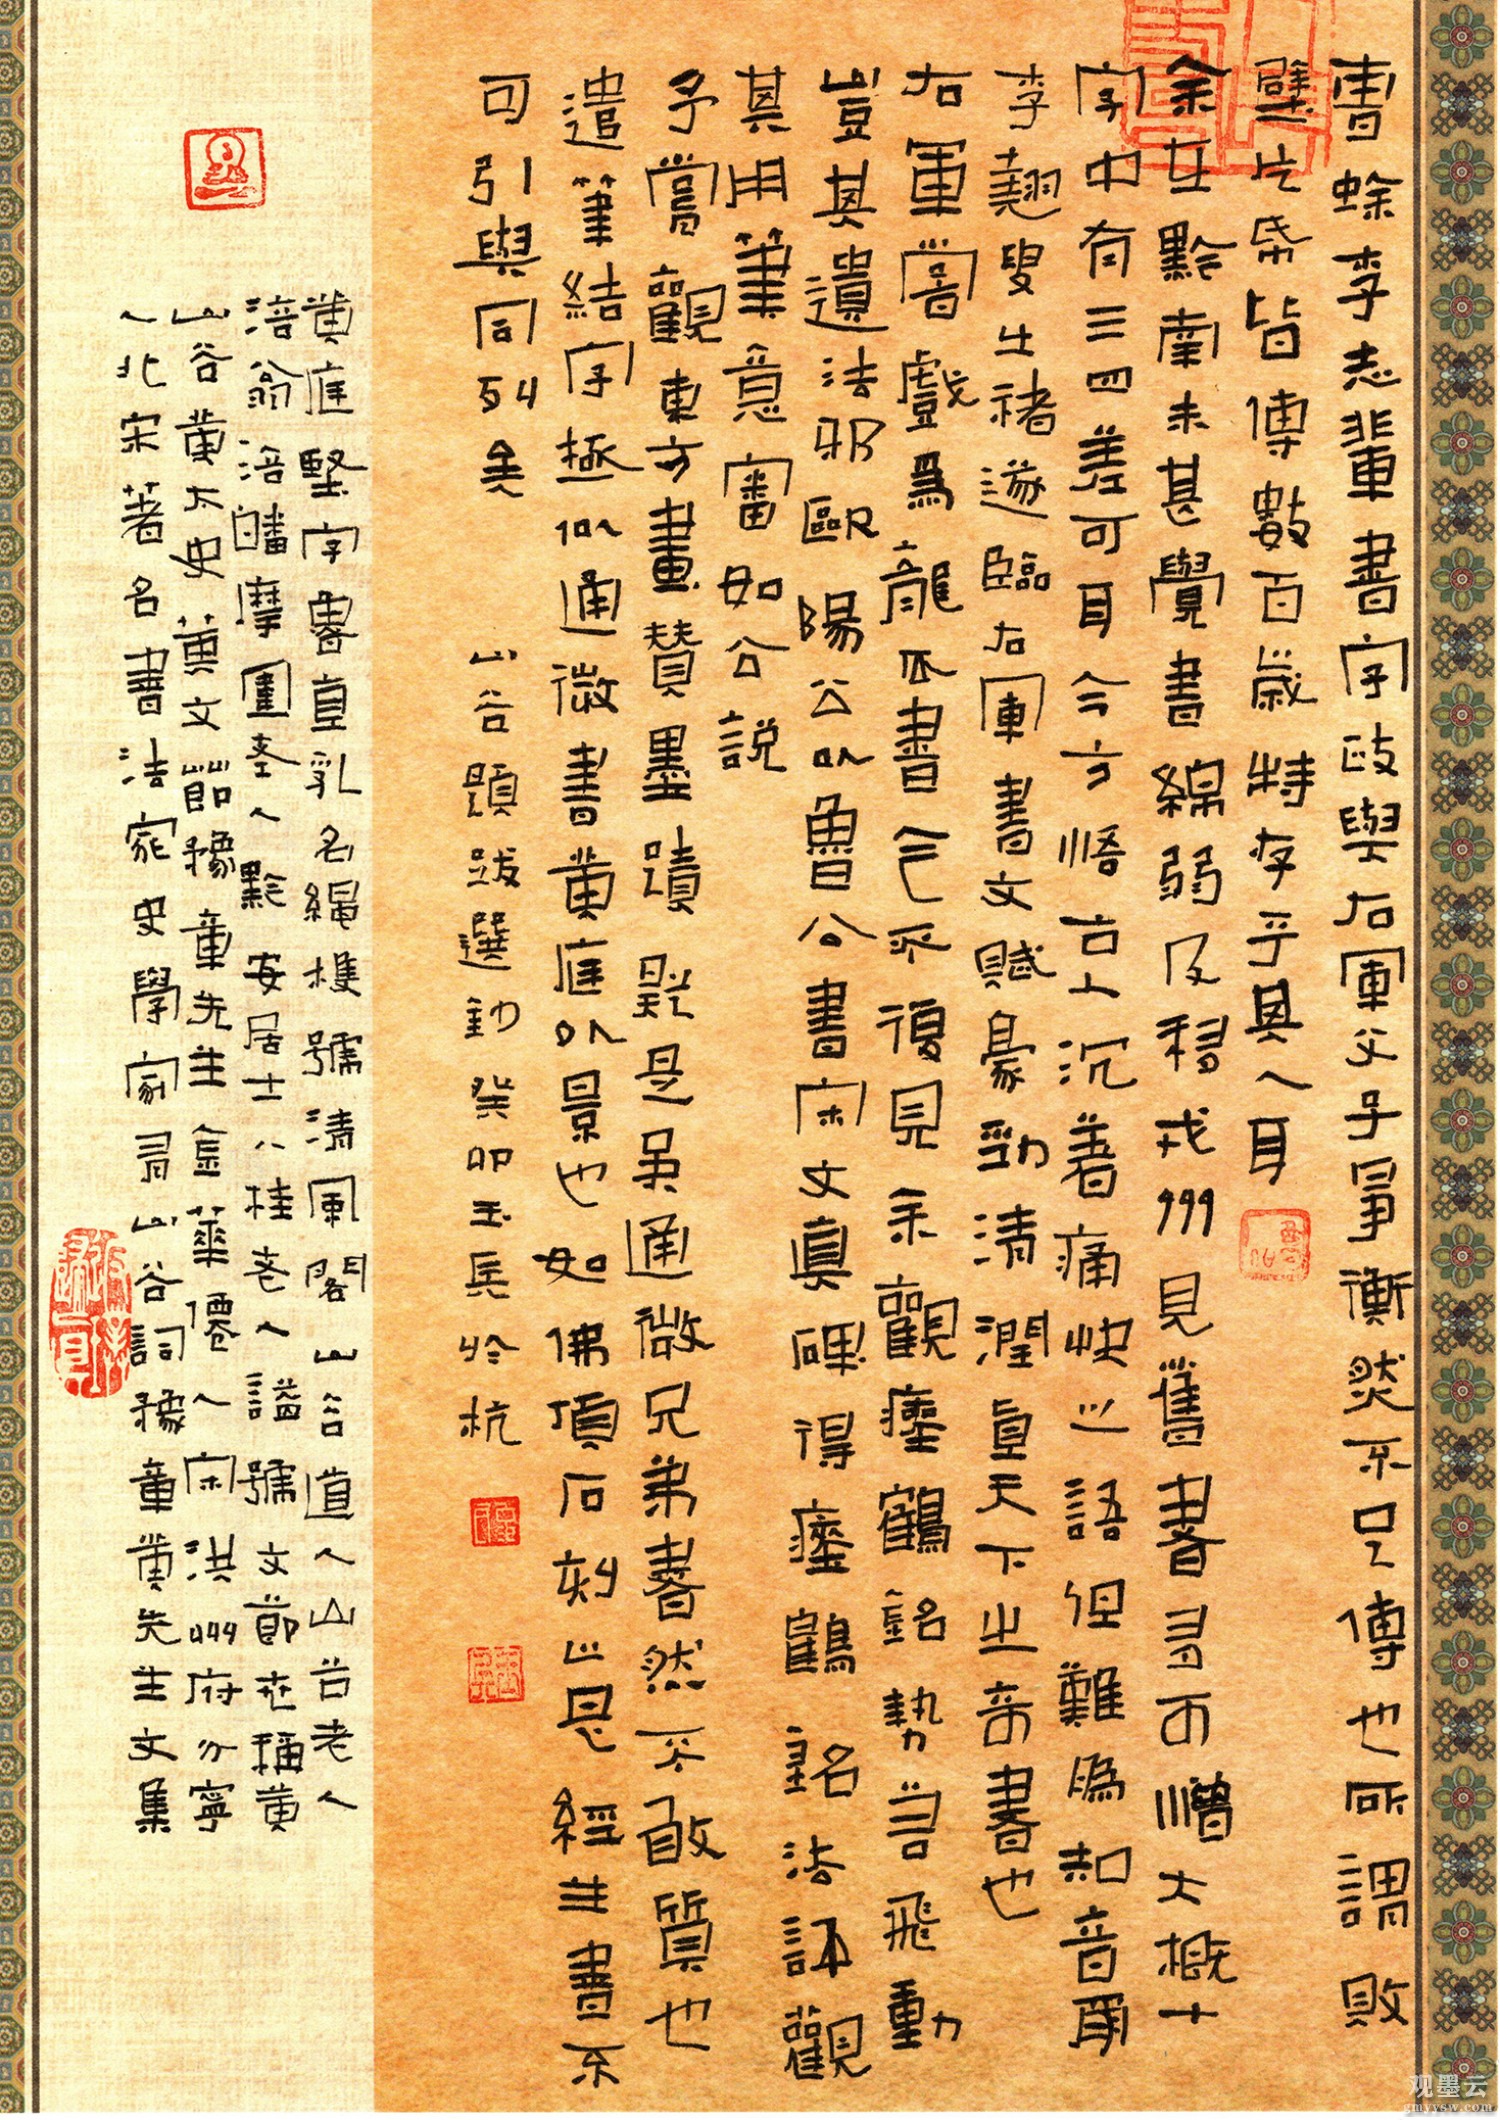 曹蜍李志輩書字政與右軍父子爭衡然不足傳也所謂敗
壁片帋皆傳數百歲特存乎其人耳
余在黔南未甚覺書綿弱及移戎州見舊書多可憎大概十
字中有三四差可耳今方悟古人沉著痛快之語但難為知音爾
李翹叟出褚遂臨右軍書文賦豪勁清潤真天下之奇書也
右軍嘗戲為龍爪書今不復見余觀瘞鶴銘勢若飛動
豈其遺法邪歐陽公以魯公書宋文真碑得瘞鶴銘法詳觀
其用筆意審如公說
予嘗觀東方畫贊墨蹟疑是吳通微兄弟書然不敢質也
遣筆結字極似通微書黃庭外景也如佛頂石刻止是經生書不
可引與同列矣
山谷題跋選 癸卯玉兵於杭
黃庭堅字魯直乳名繩權號清風閣山谷道人山谷老人
涪翁涪皤摩圍老人黔安居士八桂老人謚號文節世稱黃
山谷黃太史黃文節豫章先生金華僊人宋洪州府分寧
人北宋著名書法家史學家有山谷詞豫章黃先生文集
观墨云
gmyysw.com